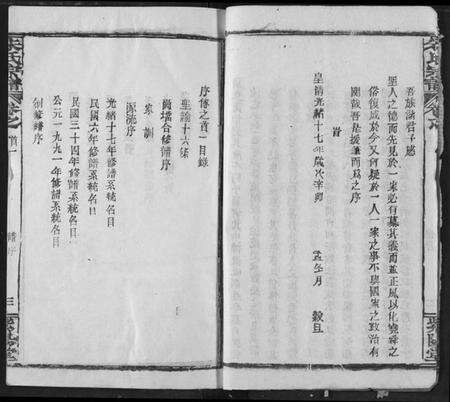 吾族諸君子感
聖人之德而先見於一家必有慕其義而益正風以化堯舜之
俗復成於今又何疑於一人一家之事不與國家之政治有
關哉吾是援筆而為之序
時
皇清光緒十七年歲次辛卯 孟冬月 穀旦
序傳之首一目錄
聖諭十六條
尚墻合修譜序
家訓
源流序
光緒十七年修譜系統名目
民國六年修譜系統名目
民國三十四年修譜系統名目
公元一九九一年修譜系統名目
創修譜序
朱氏宗譜 卷之首一 譜序 三 紫陽堂